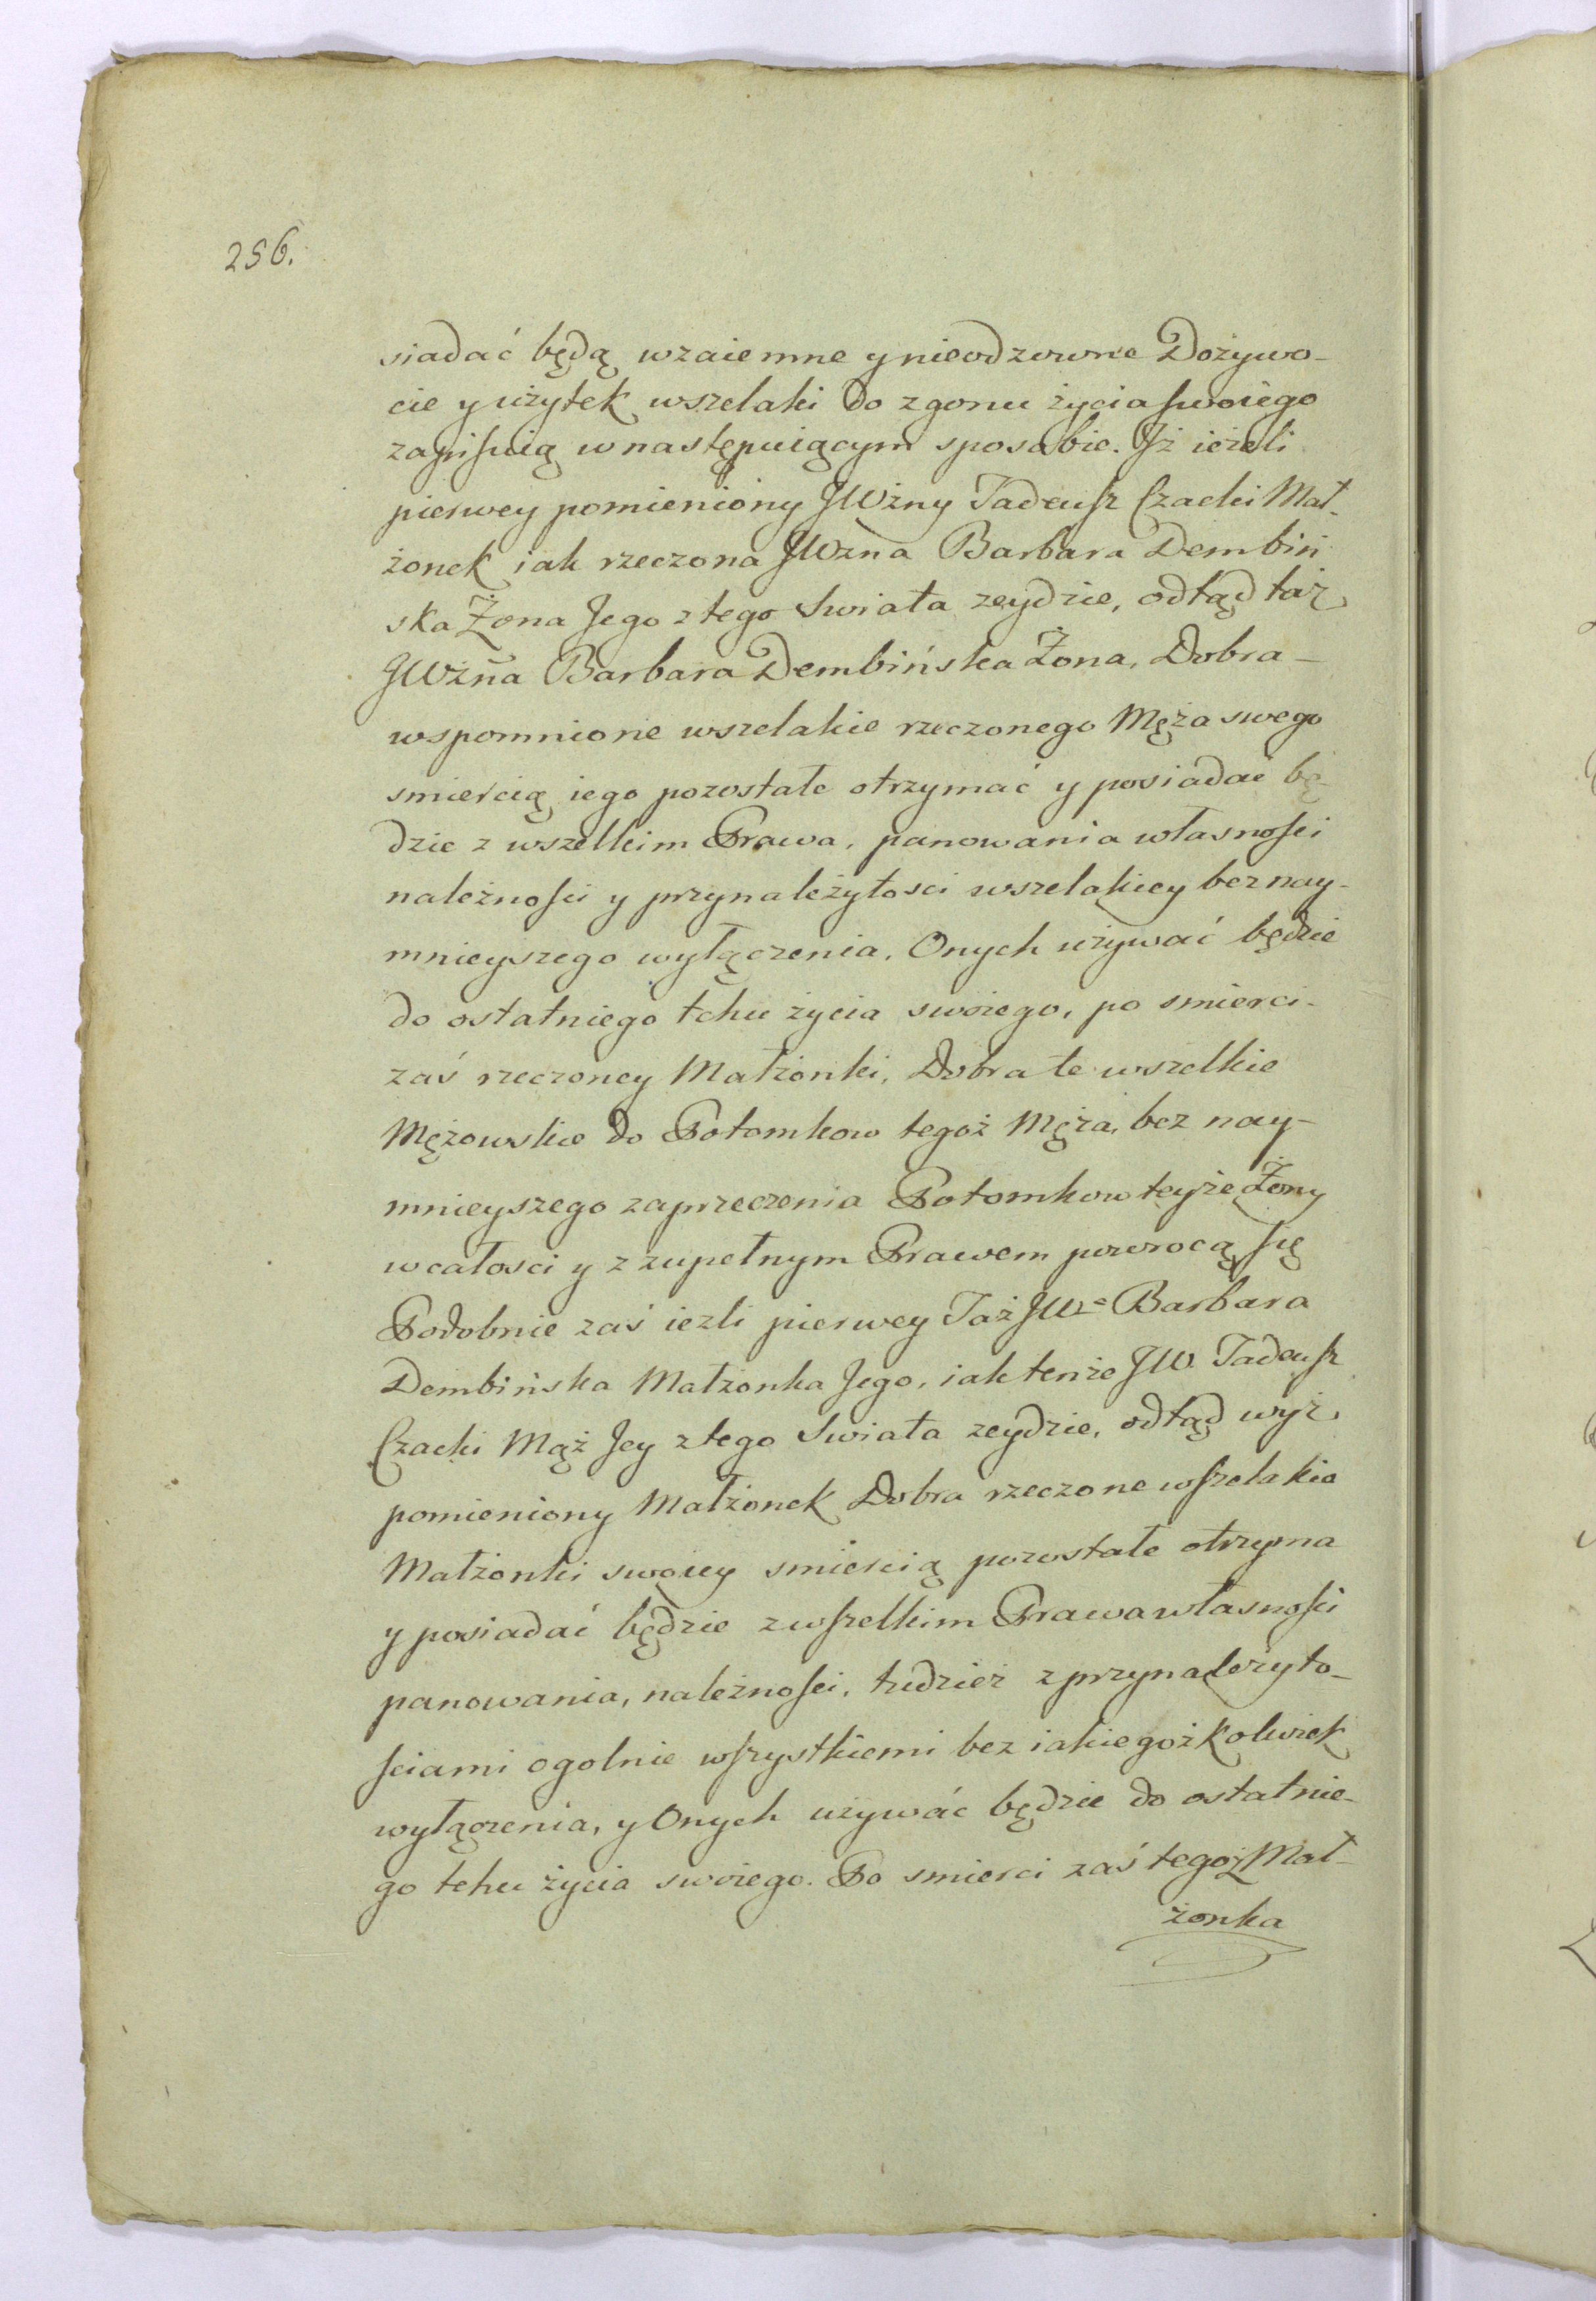 256.
siadać będą wzaiemne y nieodzowne Dożywo-
cie y użytek wszelaki do zgonu życia swoiego
zapisuią w następuiącym sposobie. Jż ieżeli
pierwey pomieniony JWżny Tadeusz Czacki Mał-
żonek iak rzeczona JWzna Barbara Dembiń
ska Żona Jego z tego Swiata zeydzie, odtąd taż
JWżna Barbara Dembińska Żona, Dobra-
wspomnione wszelakie rzeczonego Męża swego
smiercią iego pozostałe otrzymać y posiadać bę-
dzie z wszelkim Prawa, panowania własności
należności y przynależytosci wszelakiey bez nay-
mnieyszego wyłączenia, Onych używać będzie
do ostatniego tchu życia swoiego, po smierci-
zaś rzeczoney Małżonki, Dobra te wszelkie
Mężowskie do Potomkow tegoż Męża, bez nay-
mnieyszego zaprzeczenia Potomkow teyże Żony
w całosci y z zupełnym Prawem powrocą się
Podobnie zaś iezli pierwey Taż JWa Barbara
Dembińska Małżonka Jego, iak tenże JW. Tadeusz
Czacki Mąż Jey z tego Swiata zeydzie, odtąd wyż
pomieniony Małżonek Dobra rzeczone wszelakie
Małżonki swoiey smiercią pozostałe otrzyma
y posiadać będzie z wszelkim Prawa własności
panowania, należności, tudzież z przynależyto-
sciami ogolnie wszystkiemi bez iakiegożkolwiek
wyłączenia, y Onych używać będzie do ostatnie-
go tchu życia swoiego. Po smierci zaś tegoż Mał-
żonka